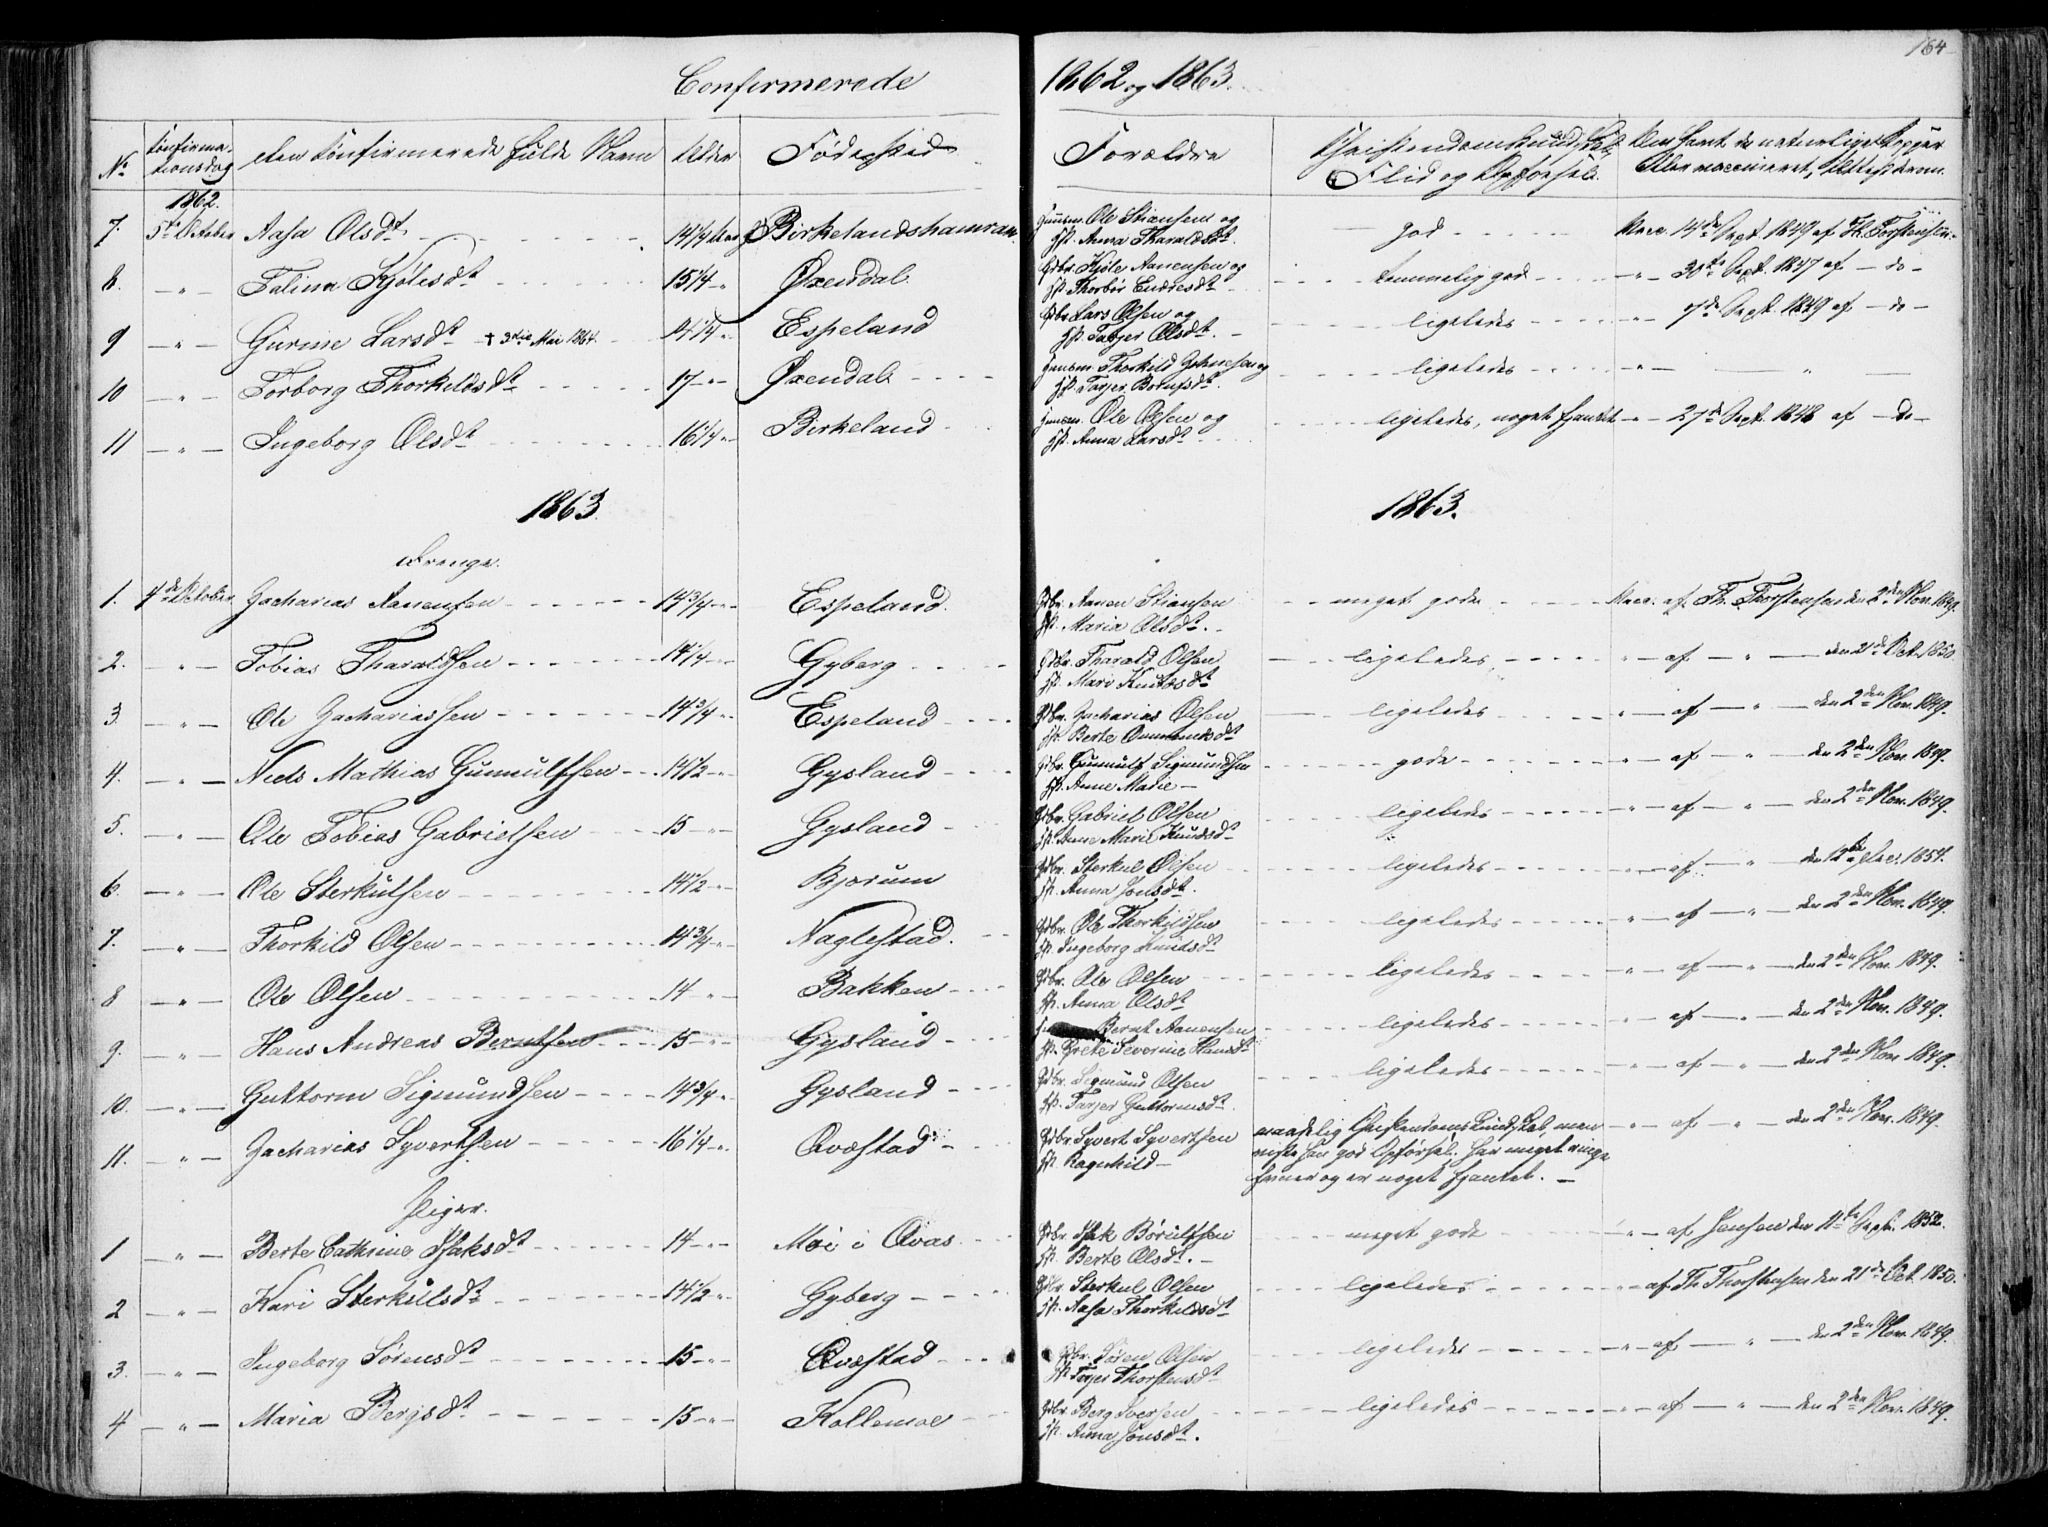 164
Confirmerede 1862 og 1863.
No Confirmationsdag Den Confirmeredes fulde Navn Alder Fødested Forældre Christendomskundskab, Flid og Opførsel. Om havt de naturlige Kopper eller vaccineret, Attest derom.
1862.
7. 5te October Aasa Olsdt 14 1/4 Aar Birkelandshamran Huusm. Ole Stiansen og Hst. Anna Tharaldsdt. god Vacc. 14de Sept. 1849 af Th. Torstensen.
8. - " - Talina Kjølesdt 15 1/4 " Øxendal Gdbr. Kjøle Aanensen og Hst. Thorbør Endresdt temmelig gode - " - 30te Sept. 1847 af - do -
9 - " - Gurine Larsdt † 3die Mai 1864. 14 1/4 " Espeland Gdbr. Lars Olsen og Hst. Tarjer Olsdt. ligeledes " 7de Sept. 1849 af - do -
10 - " - Torborg Thorkildsdt 17 - " - Øxendal Huusm. Thorkild Johnsen og Hst. Tarjer Bolufsdt. ligeledes " - " -
11 - " - Ingeborg Olsdt 16 1/4 " Birkeland Huusm. Ole Olsen og Hst. Anna Larsdt ligeledes, noget fjantet - " - 27de Sept. 1848 af - do -
1863. 1863.
Drenge.
1. 4de October Zacharias Aanensen 14 3/4 - " - Espeland. Gdbr. Aanen Stiansen Hst. Maria Olsdt. meget gode Vacc. af Th. Thorstensen den 2den Nov. 1849.
2. - " - Tobias Tharaldsen 14 1/4 - " - Gyberg Gdbr. Tharald Olsen Hst. Mari Knudsdt ligeledes " - af - " - den 21de Oct. 1850.
3. - " - Ole Zachariassen 14 3/4 " Espeland Gdbr. Zacharias Olsen Hst. Berte Omundsdt ligeledes " - af - " - den 2den Nov. 1849.
4. - " - Niels Mathias Gunnulfsen 14 1/2 - " Gysland Gdbr. Gunnulf Sigmundsen Hst. Anne Marie - gode " - af - " - den 2den Nov. 1849.
5. - " - Ole Tobias Gabrielsen 15 - " - Gysland Gdbr. Gabriel Olsen Hst. Anne Marie Knudsdt ligeledes " - af - " - den 2den Nov. 1849.
6. - " - Ole Sterkulsen 14 1/2 - " - Bjorum Gdbr. Sterkul Olsen Hst. Anna Jonsdt. ligeledes - " - af - " den 12te Dec. 1851.
7. - " - Thorkild Olsen 14 3/4 - " Naglestad. Gdbr. Ole Thorkildsen Hst. Ingeborg Knudsdt ligeledes " - af - " - den 2den Nov. 1849.
8 - " - Ole Olsen 14 - " - Bakken Gdbr. Ole Olsen Hst. Anna Olsdt ligeledes " - af - " - den 2den Nov. 1849.
9. - " - Hans Andreas Berntsen 15 - " - Gysland Bernt Aanensen Hst. Grete Severine Hansdt ligeledes " - af - " - den 2den Nov. 1849.
10. - " - Guttorm Sigmundsen 14 3/4 " Gysland Gdbr. Sigmund Olsen Hst. Tarjer Guttormsdt. ligeledes " - af - " - den 2den Nov. 1849.
11. - " - Zacharias Syvertsen 16 1/4 - " Qvæstad Gdbr. Syvert Syvertsen Hst. Ragnhild - maadelig Christendomskundskab, men
god Opførsel. Har meget ringe
og er noget fjantet. - - " - af - " - den 2den Nov. 1849.
Piger.
1 - " - Berte Cathrine Isaksdt 14 - " - Moi i Qvas Gdbr. Isak Børulfsen Hst. Berte Olsdt. - meget gode " - af Jensen den 11te Sept. 1852.
2 - " - Kari Sterkulsdt 14 1/2 " Gyberg Gdbr Sterkul Olsen Hst. Aasa Thorkildsdt ligeledes " - af Th. Thorstensen den 21de Oct. 1850.
3. - " - Ingeborg Sørensdt 15 - " - Qvæstad Gdbr. Søren Olsen Hst. Tarjer Thorstensdt ligeledes - " - af - " - den 2den Nov. 1849.
4 - " - Maria Bergsdt 15 - " - Kollemoe Gdbr Berg Iversen Hst. Anna Jonsdt. ligeledes - " - af - " - den 2den Nov. 1849.